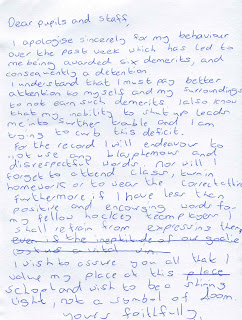 Dear pupils and staff,
I apologise sincerely for my behaviour
over the past week which has led to
me being awarded six demerits, and
consequently a detention
I understand that I must pay better
attention to myself and my surroundings
to not earn such demerits I also know
that my inability to shut up leads
me into further trouble and I am
trying to curb this deficit.
For the record I will endeavour to
not use any blasphemous and
disrespectful words, nor will
forget to attend class, turn in
homework or to wear the correct
furthermore, if I have less than
positive and encouraging words for
my fellow hockey I
shall retain from expressing them
even is the ineptitude of our goalie
I wish to assure you all that I
value my place at this place
school and wish to be a shining
light, not a symbol of doom.
yours faithfully,